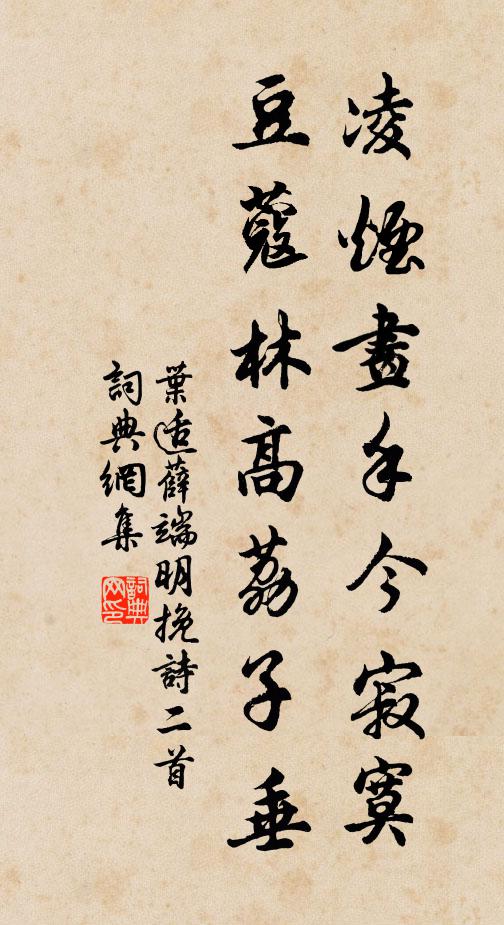 凌煙畫手今寂寞
豆蔻林高荔子垂
葉适薛端明挽詩二首
詞典網集
詞典網印